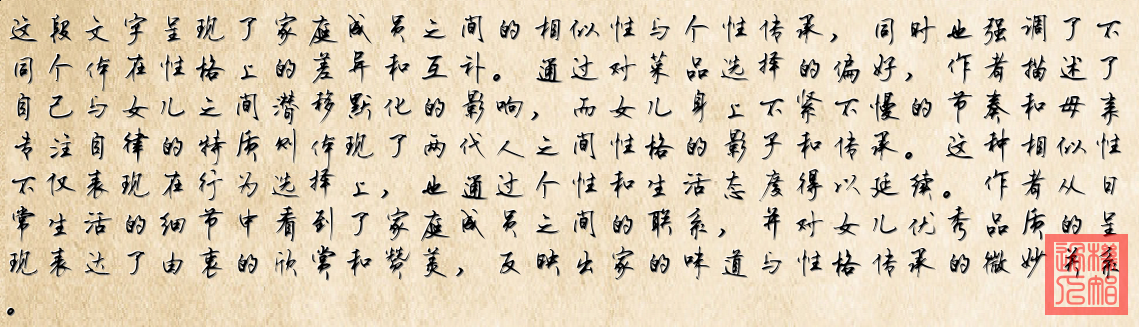 这段文字呈现了家庭成员之间的相似性与个性传承，同时也强调了不
同个体在性格上的差异和互补。通过对菜品选择的偏好，作者描述了
自己与女儿之间潜移默化的影响，而女儿身上不紧不慢的节奏和母亲
专注自律的特质则体现了两代人之间性格的影子和传承。这种相似性
不仅表现在行为选择上，也通过个性和生活态度得以延续。作者从日
常生活的细节中看到了家庭成员之间的联系，并对女儿优秀品质的呈
现表达了由衷的欣赏和赞美，反映出家的味道与性格传承的微妙关系
。